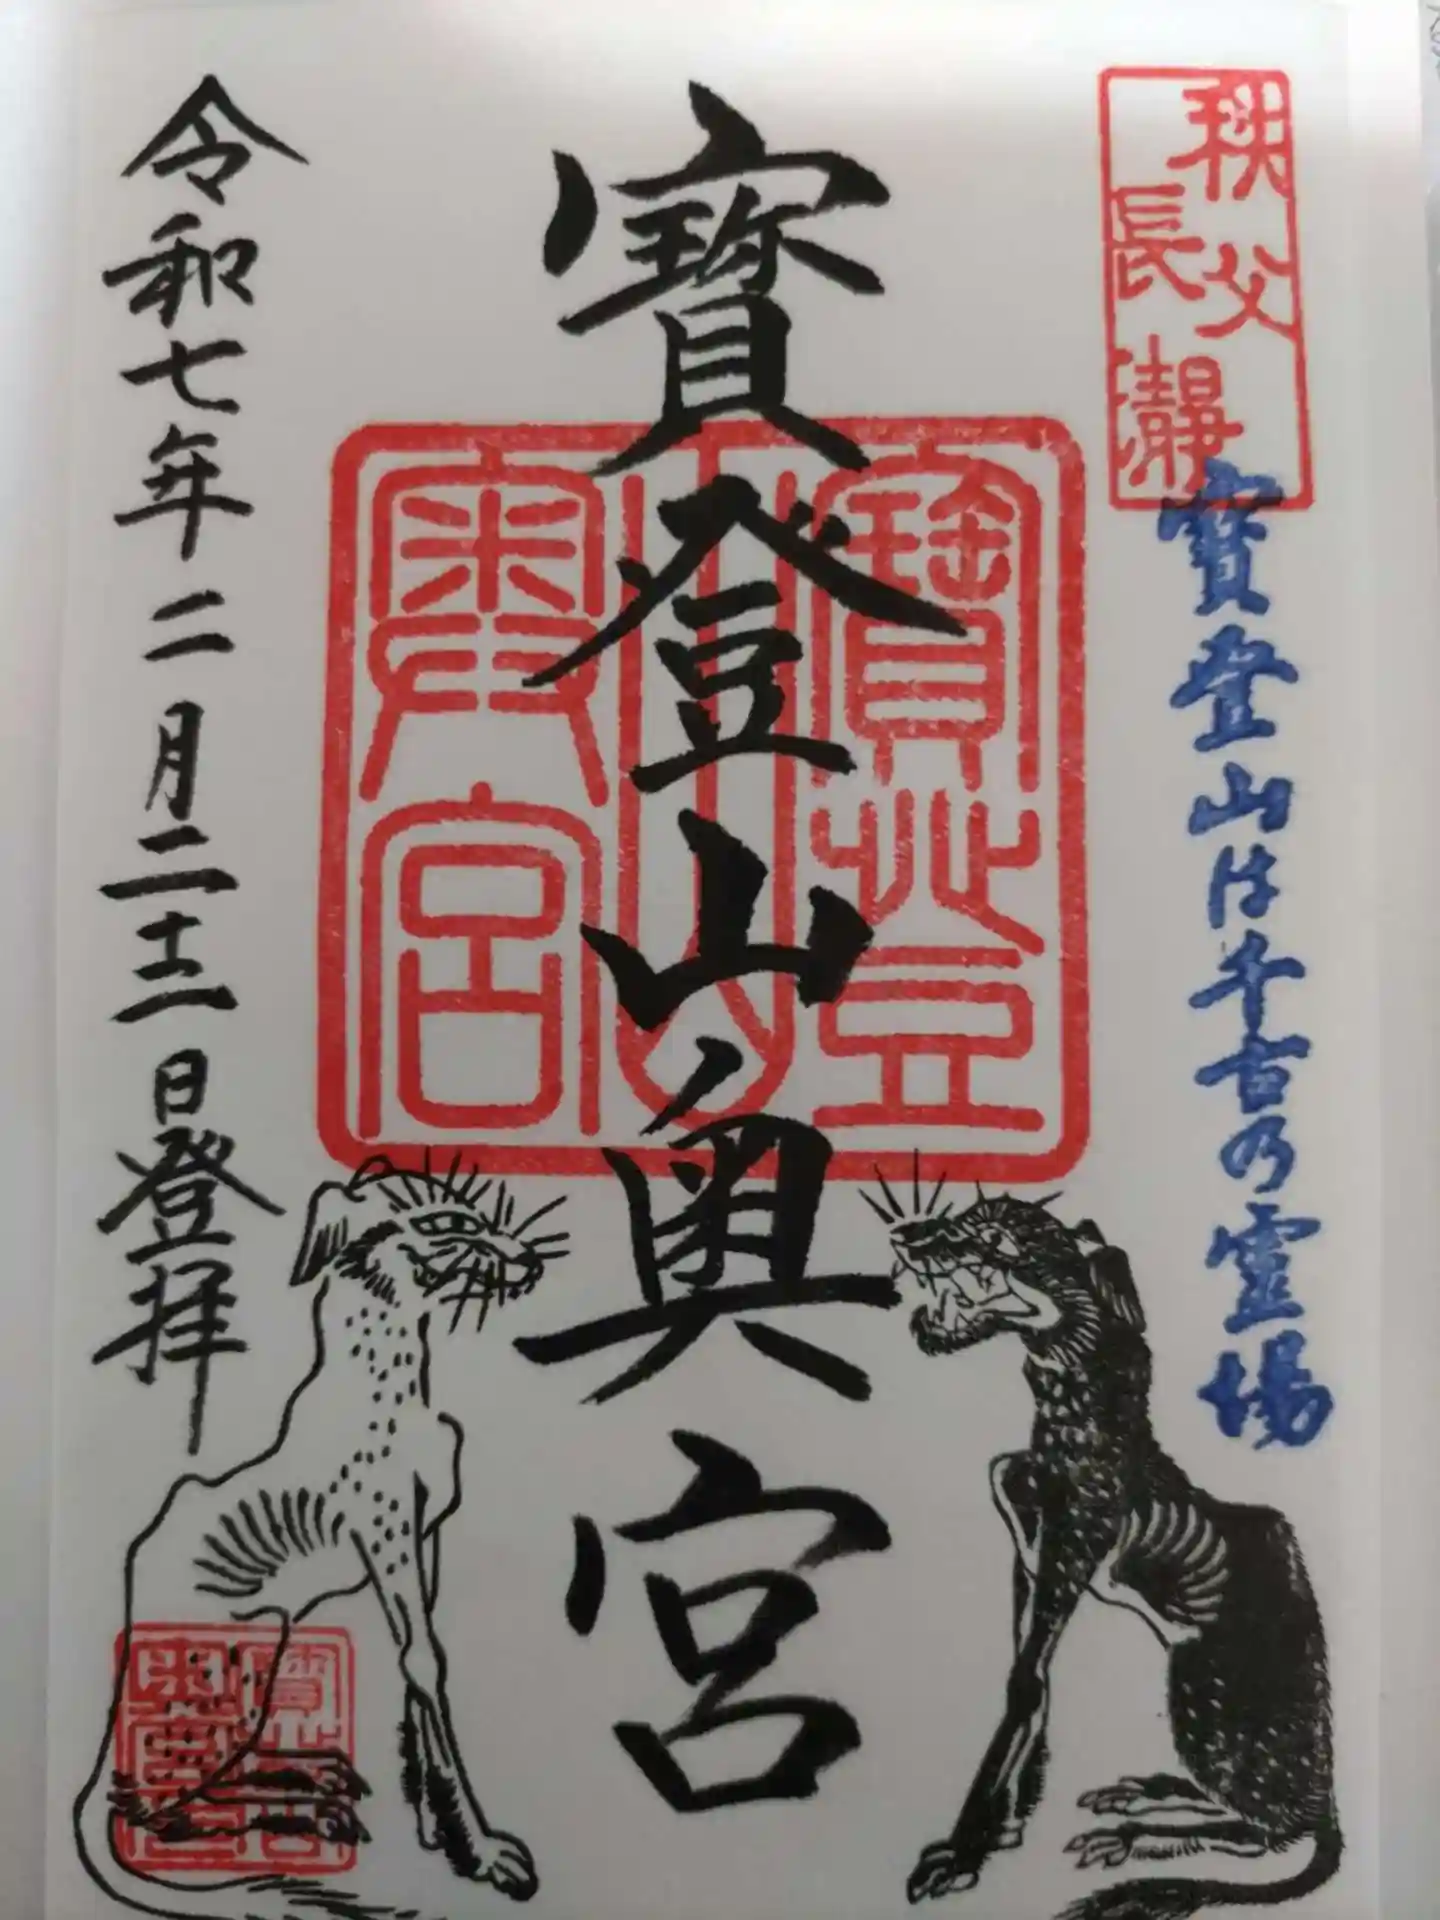 秩父
長瀞
寶登山は千古乃霊場
寶登山奥宮
寶登
山
奥宮
令和七年二月二十二日登拝